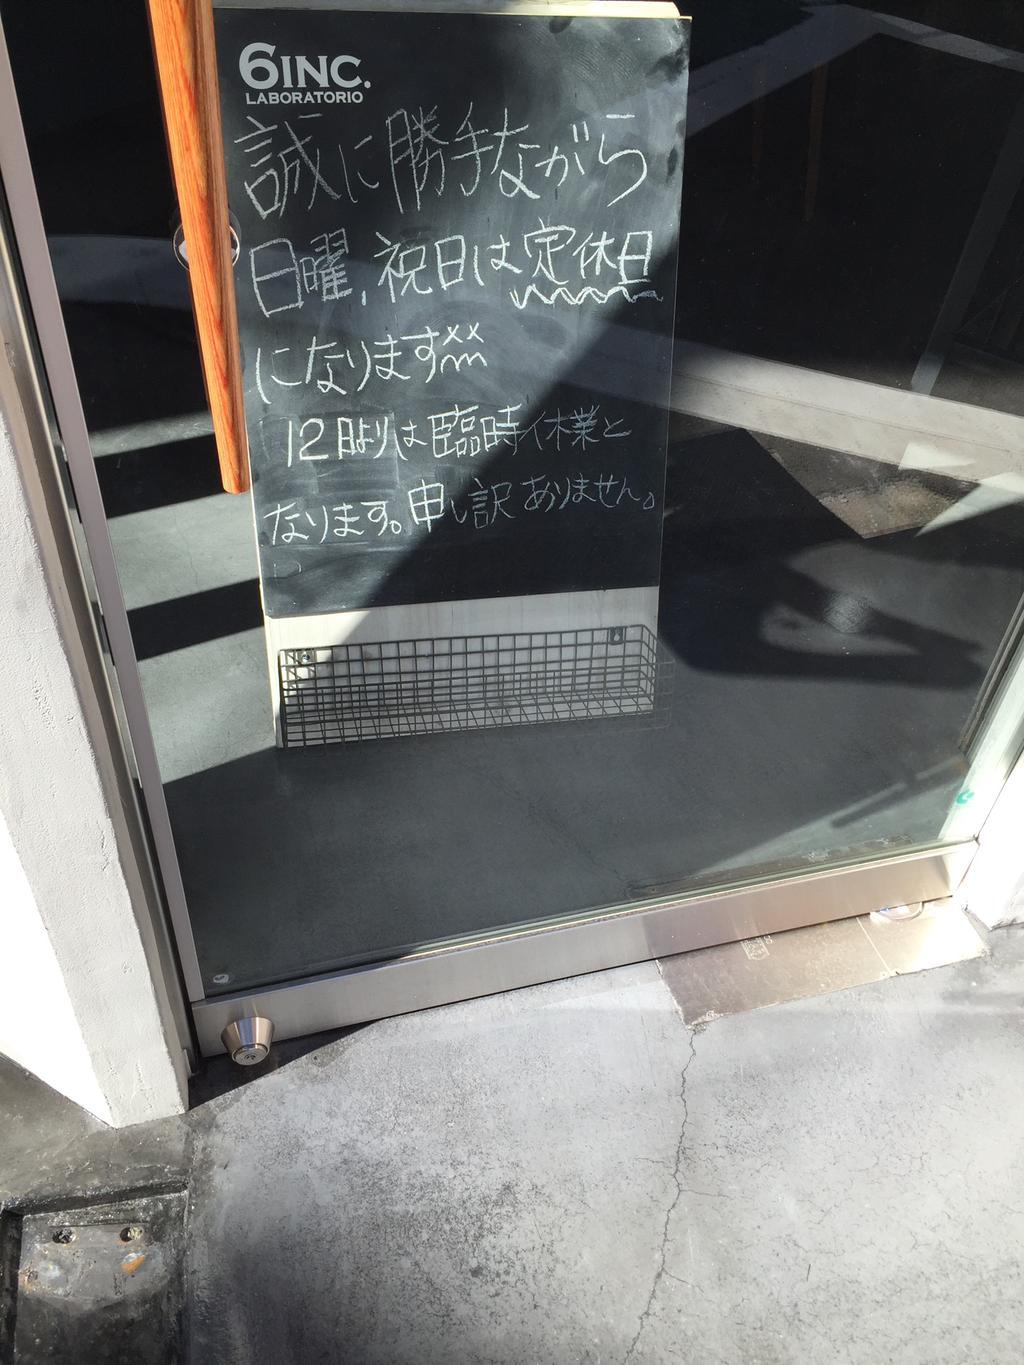 6INC.
LABORATORIO
誠に勝手ながら
日曜,祝日は定休日
になります
12日よりは臨時休業と
なります。申し訳ありません。